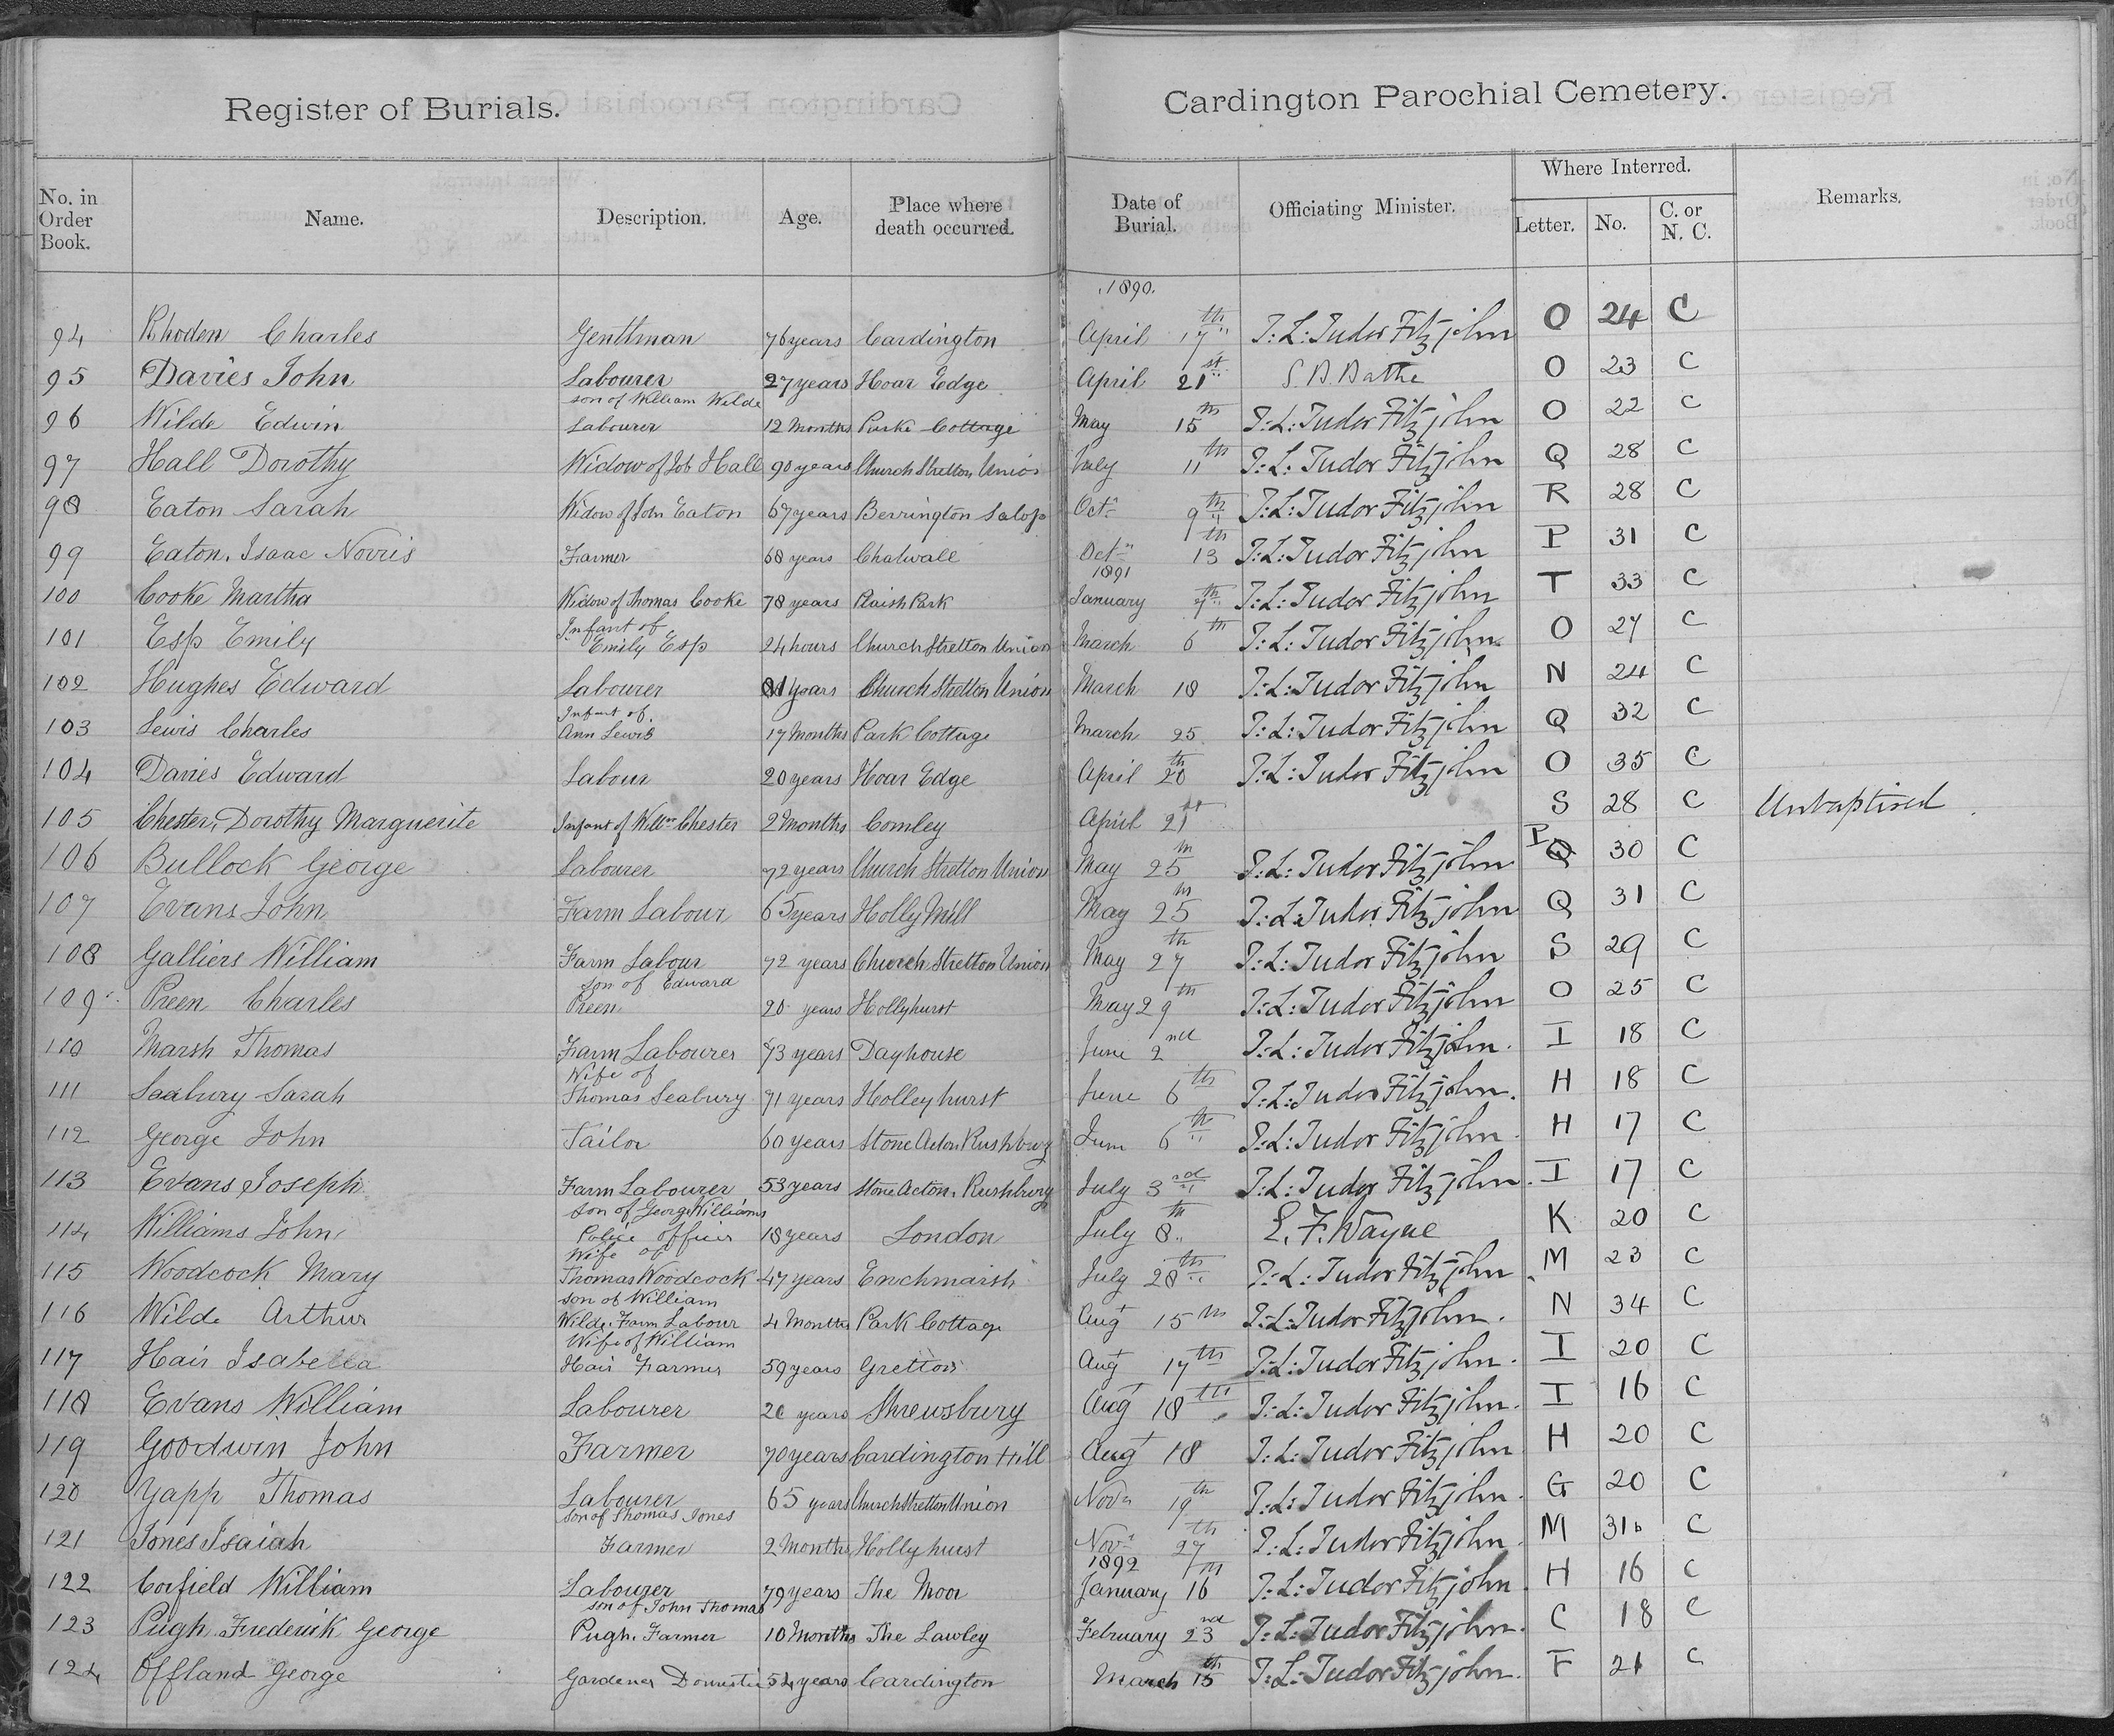 Register of Burials.
Cardington Parochial Cemetery.
No. in Order Book. Name. Description. Age. Place where death occurred. Date of Burial. Officiating Minister. Where Interred. Letter. No. C. or N. C. Remarks.
1890.
94 Rhoden Charles Gentleman 76 years Cardington April 17th T: L: Tudor Fitzjohn O 24 C
95 Davies John Labourer 27 years Hoar Edge April 21st S. B. Bathe O 23 C
son of William Wilde
96 Wilde Edwin Labourer 12 Months Parke Cottage May 15th T: L: Tudor Fitzjohn O 22 C
97 Hall Dorothy Widow of Job Hall 90 years Church Stretton Union July 11th T: L: Tudor Fitzjohn Q 28 C
98 Eaton Sarah Widow of John Eaton 67 years Berrington Salop Oct 9th T: L: Tudor Fitzjohn R 28 C
99 Eaton, Isaac Norris Farmer 68 years Chatwall Oct 13th T: L: Tudor Fitzjohn P 31 C
1891
100 Cooke Martha Widow of Thomas Cooke 78 years Plaish Park January 7th T: L: Tudor Fitzjohn T 33 C
Infant of
101 Esp Emily Emily Esp 24 hours Church Stretton Union March 6th T: L: Tudor Fitzjohn O 27 C
102 Hughes Edward Labourer 81 years Church Stretton Union March 18 T: L: Tudor Fitzjohn N 24 C
Infant of
103 Lewis Charles Ann Lewis 17 Months Park Cottage March 25 T: L: Tudor Fitzjohn Q 32 C
104 Davies Edward Labour 20 years Hoar Edge April 20th T: L: Tudor Fitzjohn O 35 C
105 Chester, Dorothy Marguerite Infant of Willm Chester 2 Months Comley April 21st S 28 C Unbaptised.
106 Bullock George Labourer 72 years Church Stretton Union May 25th T: L: Tudor Fitzjohn P 30 C
107 Evans John Farm Labour 65 years Holly Mill May 25th T: L: Tudor Fitzjohn Q 31 C
108 Galliers William Farm Labour 72 years Church Stretton Union May 27th T: L: Tudor Fitzjohn S 29 C
son of Edward
109 Preen Charles Preen 20 years Hollyhurst May 29th T: L: Tudor Fitzjohn O 25 C
110 Marsh Thomas Farm Labourer 73 years Dayhouse June 2nd T: L: Tudor Fitzjohn. I 18 C
Wife of
111 Seabury Sarah Thomas Seabury 71 years Holleyhurst June 6th T: L: Tudor Fitzjohn. H 18 C
112 George John Tailor 60 years Stone Acton Rushbury June 6th T: L: Tudor Fitzjohn. H 17 C
113 Evans Joseph Farm Labourer 53 years Stone Acton, Rushbury July 3rd T: L: Tudor Fitzjohn. I 17 C
son of George Williams
114 Williams John Police Officer 18 years London July 8th E. F. Wayne K 20 C
Wife of
115 Woodcock Mary Thomas Woodcock 47 years Enchmarsh July 28th T: L: Tudor Fitzjohn M 23 C
son of William
116 Wilde Arthur Wilde, Farm Labour 4 Months Park Cottage Augt 15th T: L: Tudor Fitzjohn. N 34 C
Wife of William
117 Hair Isabella Hair Farmer 59 years Gretton Augt 17th T: L: Tudor Fitzjohn. I 20 C
118 Evans William Labourer years Shrewsbury Augt 18th T: L: Tudor Fitzjohn. I 16 C
119 Goodwin John Farmer 70 years Cardington Hill Augt 18 T: L: Tudor Fitzjohn H 20 C
120 Yapp Thomas Labourer 65 years Church Stretton Union Novr 19th T: L: Tudor Fitzjohn. G 20 C
son of Thomas Jones
121 Jones Isaiah Farmer 2 Months Hollyhurst Novr 27th T: L: Tudor Fitzjohn. M 31b C
1892
122 Corfield William Labourer 79 years The Moor January 16th T: L: Tudor Fitzjohn. H 16 C
son of John Thomas
123 Pugh Frederick George Pugh, Farmer 10 Months The Lawley February 23rd T: L: Tudor Fitzjohn. C 18 C
124 Offland George Gardener Domestic 54 years Cardington March 15th T: L: Tudor Fitzjohn. F 21 C